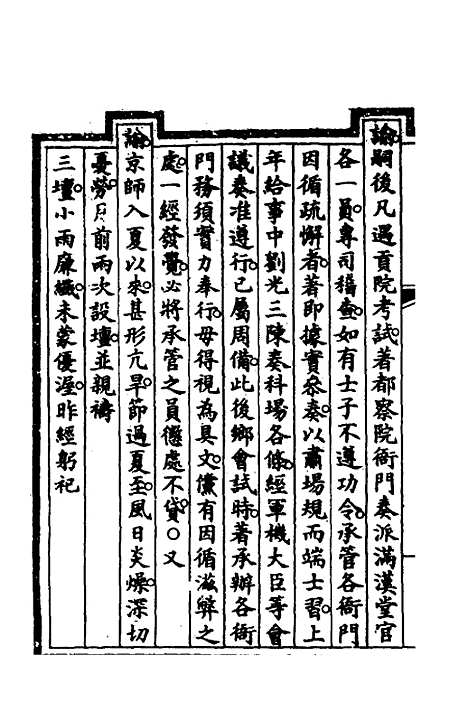 諭嗣後凡遇貢院考試著都察院衙門奏派滿漢堂官
各一員專司稽查如有士子不遵功令承管各衙門
因循疏懈者著即據實叅奏以肅場規而端士習上
年給事中劉光三陳奏科場各條經軍機大臣等會
議奏准遵行已屬周備此後鄉會試時著承辦各衙
門務須實力奉行毋得視為具文儻有因循滋弊之
處一經發覺必將承管之員懲處不貸○又
諭京師入夏以來甚形亢旱節過夏至風日炎燥深切
憂勞月前兩次設壇並親禱
三壇小雨廉纖未蒙優渥昨經躬祀